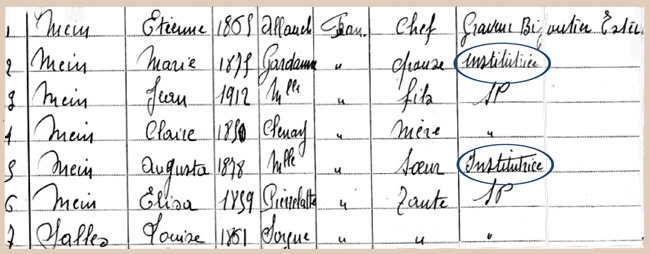 1 Mein Etienne 1865 Allauch Fran. Chef Graveur Bijoutier
2 Mein Marie 1875 Gardanne " épouse institutrice
3 Mein Jean 1912 Mlle " fils SP
4 Mein Claire 1830 " mère "
5 Mein Augusta 1878 Mlle " sœur Institutrice
6 Mein Elisa 1859 Pierrelatte " Tante SP
7 Salles Louise 1861 Sorgue " " "